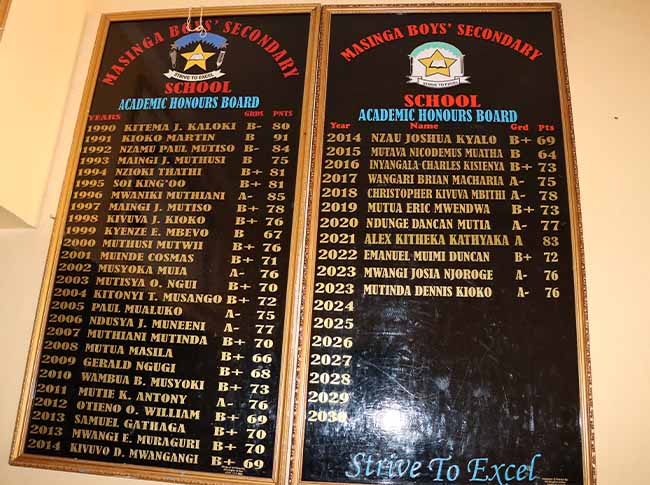 MASINGA BOYS' SECONDARY
STRIVE TO EXCEL
SCHOOL
ACADEMIC HONOURS BOARD
YEARS GRDS PNTS
1990 KITEMA J. KALOKI B- 80
1991 KIOKO MARTIN B- 91
1992 NZAMU PAUL MUTISO B- 84
1993 MAINGI J. MUTHUSI B 75
1994 NZIOKI THATHI B+ 81
1995 SOI KING'OO B+ 81
1996 MWANIKI MUTHIANI A- 85
1997 MAINGI J. MUTISO B+ 78
1998 KIVUVA J. KIOKO B+ 76
1999 KYENZE E. MBEVO B 67
2000 MUTHUSI MUTWII B+ 76
2001 MUINDE COSMAS B+ 71
2002 MUSYOKA MUIA A- 76
2003 MUTISYA O. NGUI B+ 70
2004 KITONYI T. MUSANGO B+ 72
2005 PAUL MUALUKO A- 75
2006 NDUSYA J. MUNEENI A- 77
2007 MUTHIANI MUTINDA B+ 70
2008 MUTUA MASILA B+ 66
2009 GERALD NGUGI B+ 68
2010 WAMBUA B. MUSYOKI B+ 73
2011 MUTIE K. ANTONY A- 76
2012 OTIENO O. WILLIAM B+ 69
2013 SAMUEL GATHAGA B+ 70
2013 MWANGI E. MURAGURI B+ 70
2014 KIVUVO D. MWANGANGI B+ 69
MASINGA BOYS' SECONDARY
STRIVE TO EXCEL
SCHOOL
ACADEMIC HONOURS BOARD
Year Name Grd Pts
2014 NZAU JOSHUA KYALO B+ 69
2015 MUTAVA NICODEMUS MUATHA B 64
2016 INYANGALA CHARLES KISIENYA B+ 73
2017 WANGARI BRIAN MACHARIA A- 75
2018 CHRISTOPHER KIVUVA MBITHI A- 78
2019 MUTUA ERIC MWENDWA B+ 73
2020 NDUNGE DANCAN MUTIA A- 77
2021 ALEX KITHEKA KATHYAKA A 83
2022 EMANUEL MUIMI DUNCAN B+ 72
2023 MWANGI JOSIA NJOROGE A- 76
2023 MUTINDA DENNIS KIOKO A- 76
2024
2025
2026
2027
2028
2029
2030
Strive To Excel